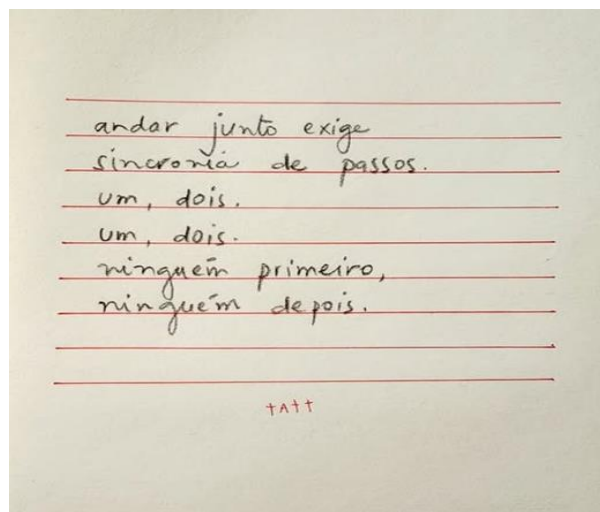 andar junto exige
sincronia de passos.
um, dois.
um, dois.
ninguém primeiro,
ninguém depois.
tAtt